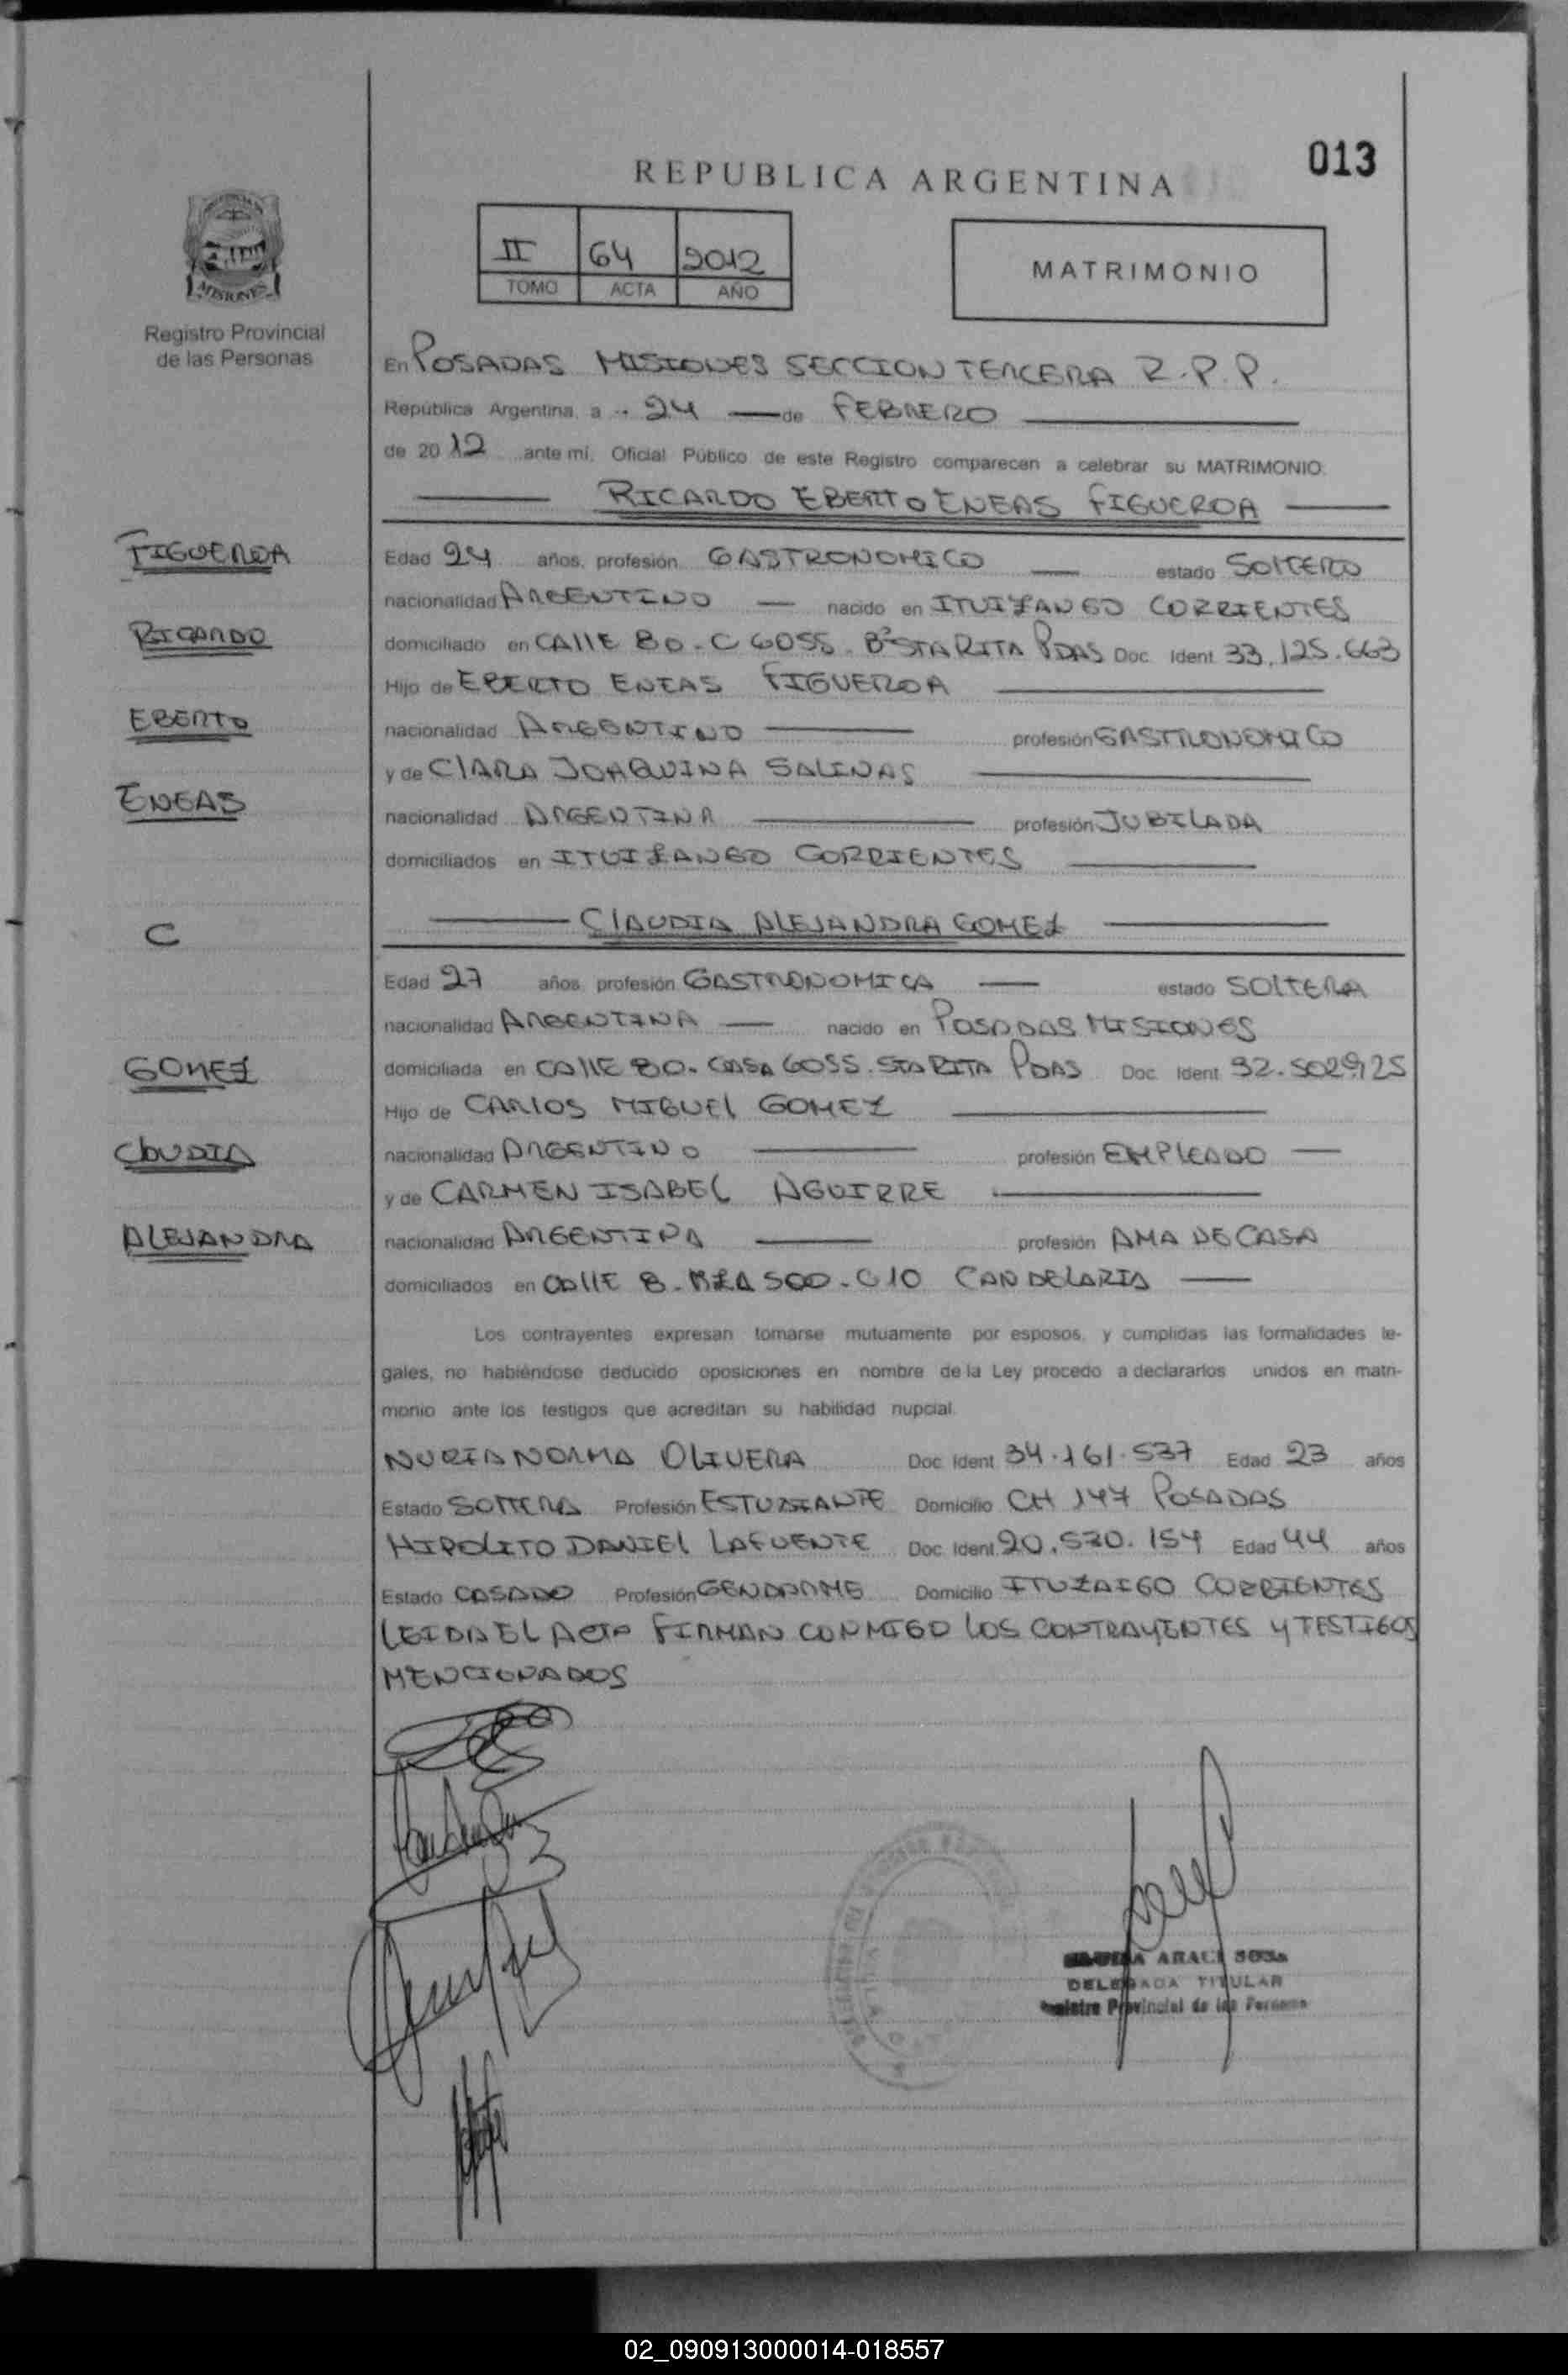 013
REPUBLICA ARGENTINA
II 64 2012
TOMO ACTA AÑO
MATRIMONIO
MISIONES
Registro Provincial
de las Personas
En POSADAS MISIONES SECCION TERCERA R.P.P.
República Argentina, a 24 de FEBRERO
de 2012 ante mi, Oficial Público de este Registro comparecen a celebrar su MATRIMONIO:
RICARDO EBERTO ENEAS FIGUEROA
FIGUEROA
Edad 24 años, profesión GASTRONOMICO estado SOLTERO
nacionalidad ARGENTINO nacido en ITUIZANGO CORRIENTES
RICARDO
domiciliado en CALLE 80-C 6055. Bº STA RITA PDAS Doc. Ident. 33.125.663
Hijo de EBERTO ENEAS FIGUEROA
EBERTO
nacionalidad ARGENTINO profesión GASTRONOMICO
y de CLARA JOAQUINA SALINAS
ENEAS
nacionalidad ARGENTINA profesión JUBILADA
domiciliados en ITUIZANGO CORRIENTES
C
CLAUDIA ALEJANDRA GOMEZ
Edad 27 años, profesión GASTRONOMICA estado SOLTERA
nacionalidad ARGENTINA nacido en POSADAS MISIONES
GOMEZ
domiciliada en CALLE 80. CASA 6055. STA RITA PDAS Doc. Ident. 32.
Hijo de CARLOS MIGUEL GOMEZ
CLAUDIA
nacionalidad ARGENTINO profesión EMPLEADO
y de CARMEN ISABEL AGUIRRE
ALEJANDRA
nacionalidad ARGENTINA profesión AMA DE CASA
domiciliados en CALLE 8. MZA 500. C 10 CANDELARIA
Los contrayentes expresan tomarse mutuamente por esposos, y cumplidas las formalidades le-
gales, no habiéndose deducido oposiciones en nombre de la Ley procedo a declararlos unidos en matri-
monio ante los testigos que acreditan su habilidad nupcial.
NURIA NORMA OLIVERA Doc. Ident. 34.161.537 Edad 23 años
Estado SOLTERA Profesión ESTUDIANTE Domicilio CH 147 POSADAS
HIPOLITO DANIEL LAFUENTE Doc. Ident. 20.530.154 Edad 44 años
Estado CASADO Profesión GENDARME Domicilio ITUZAIGO CORRIENTES
LEIDA EL ACTA FIRMAN CONMIGO LOS CONTRAYENTES Y TESTIGOS
MENCIONADOS
DELEGADA TITULAR
Registro Provincial de las Personas
02_090913000014-018557